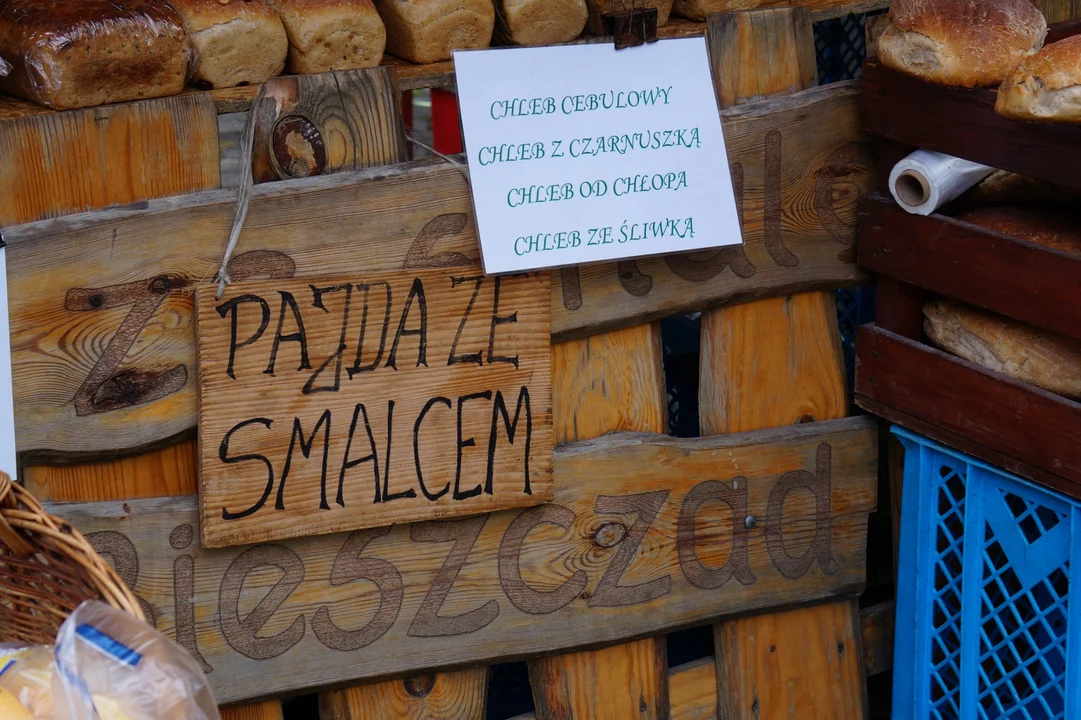 CHLEB CEBULOWY
CHLEB Z CZARNUSZKĄ
CHLEB OD CHŁOPA
CHLEB ZE ŚLIWKĄ
PAJDA ZE
SMALCEM
Bieszczad